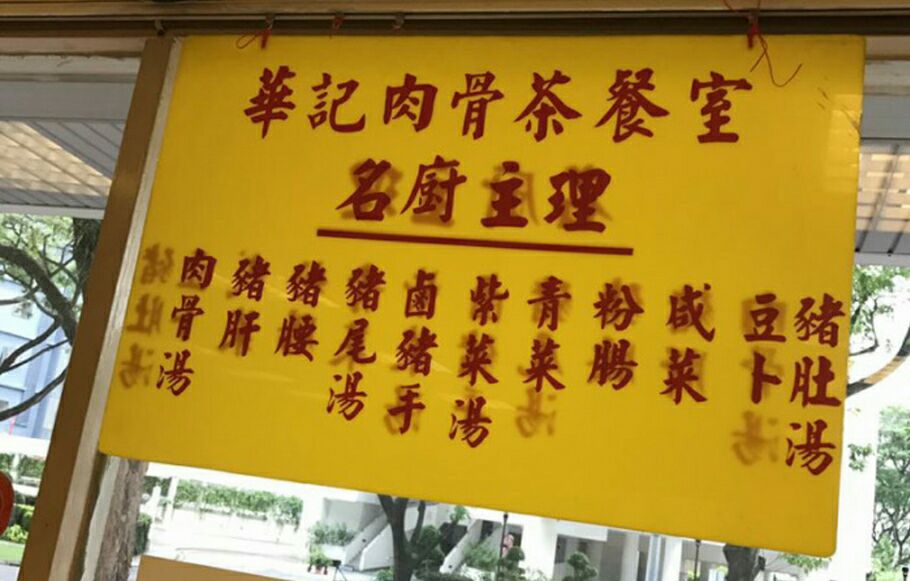 華記肉骨茶餐室
名廚主理
肉骨湯
豬肝
豬腰
豬尾湯
鹵豬手
紫菜湯
青菜
粉腸
咸菜
豆卜
豬肚湯